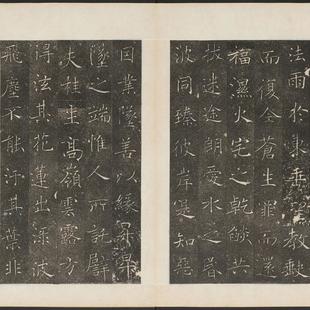 法雨於東垂聖教缺
而復全蒼生罪而還
福濕火宅之乾燄共
拔迷途朗愛水之昏
波同臻彼岸是知惡
因業墜善以緣昇昇
墜之端惟人所託譬
夫桂生高嶺雲露方
得泫其花蓮出淥波
飛塵不能汙其葉非